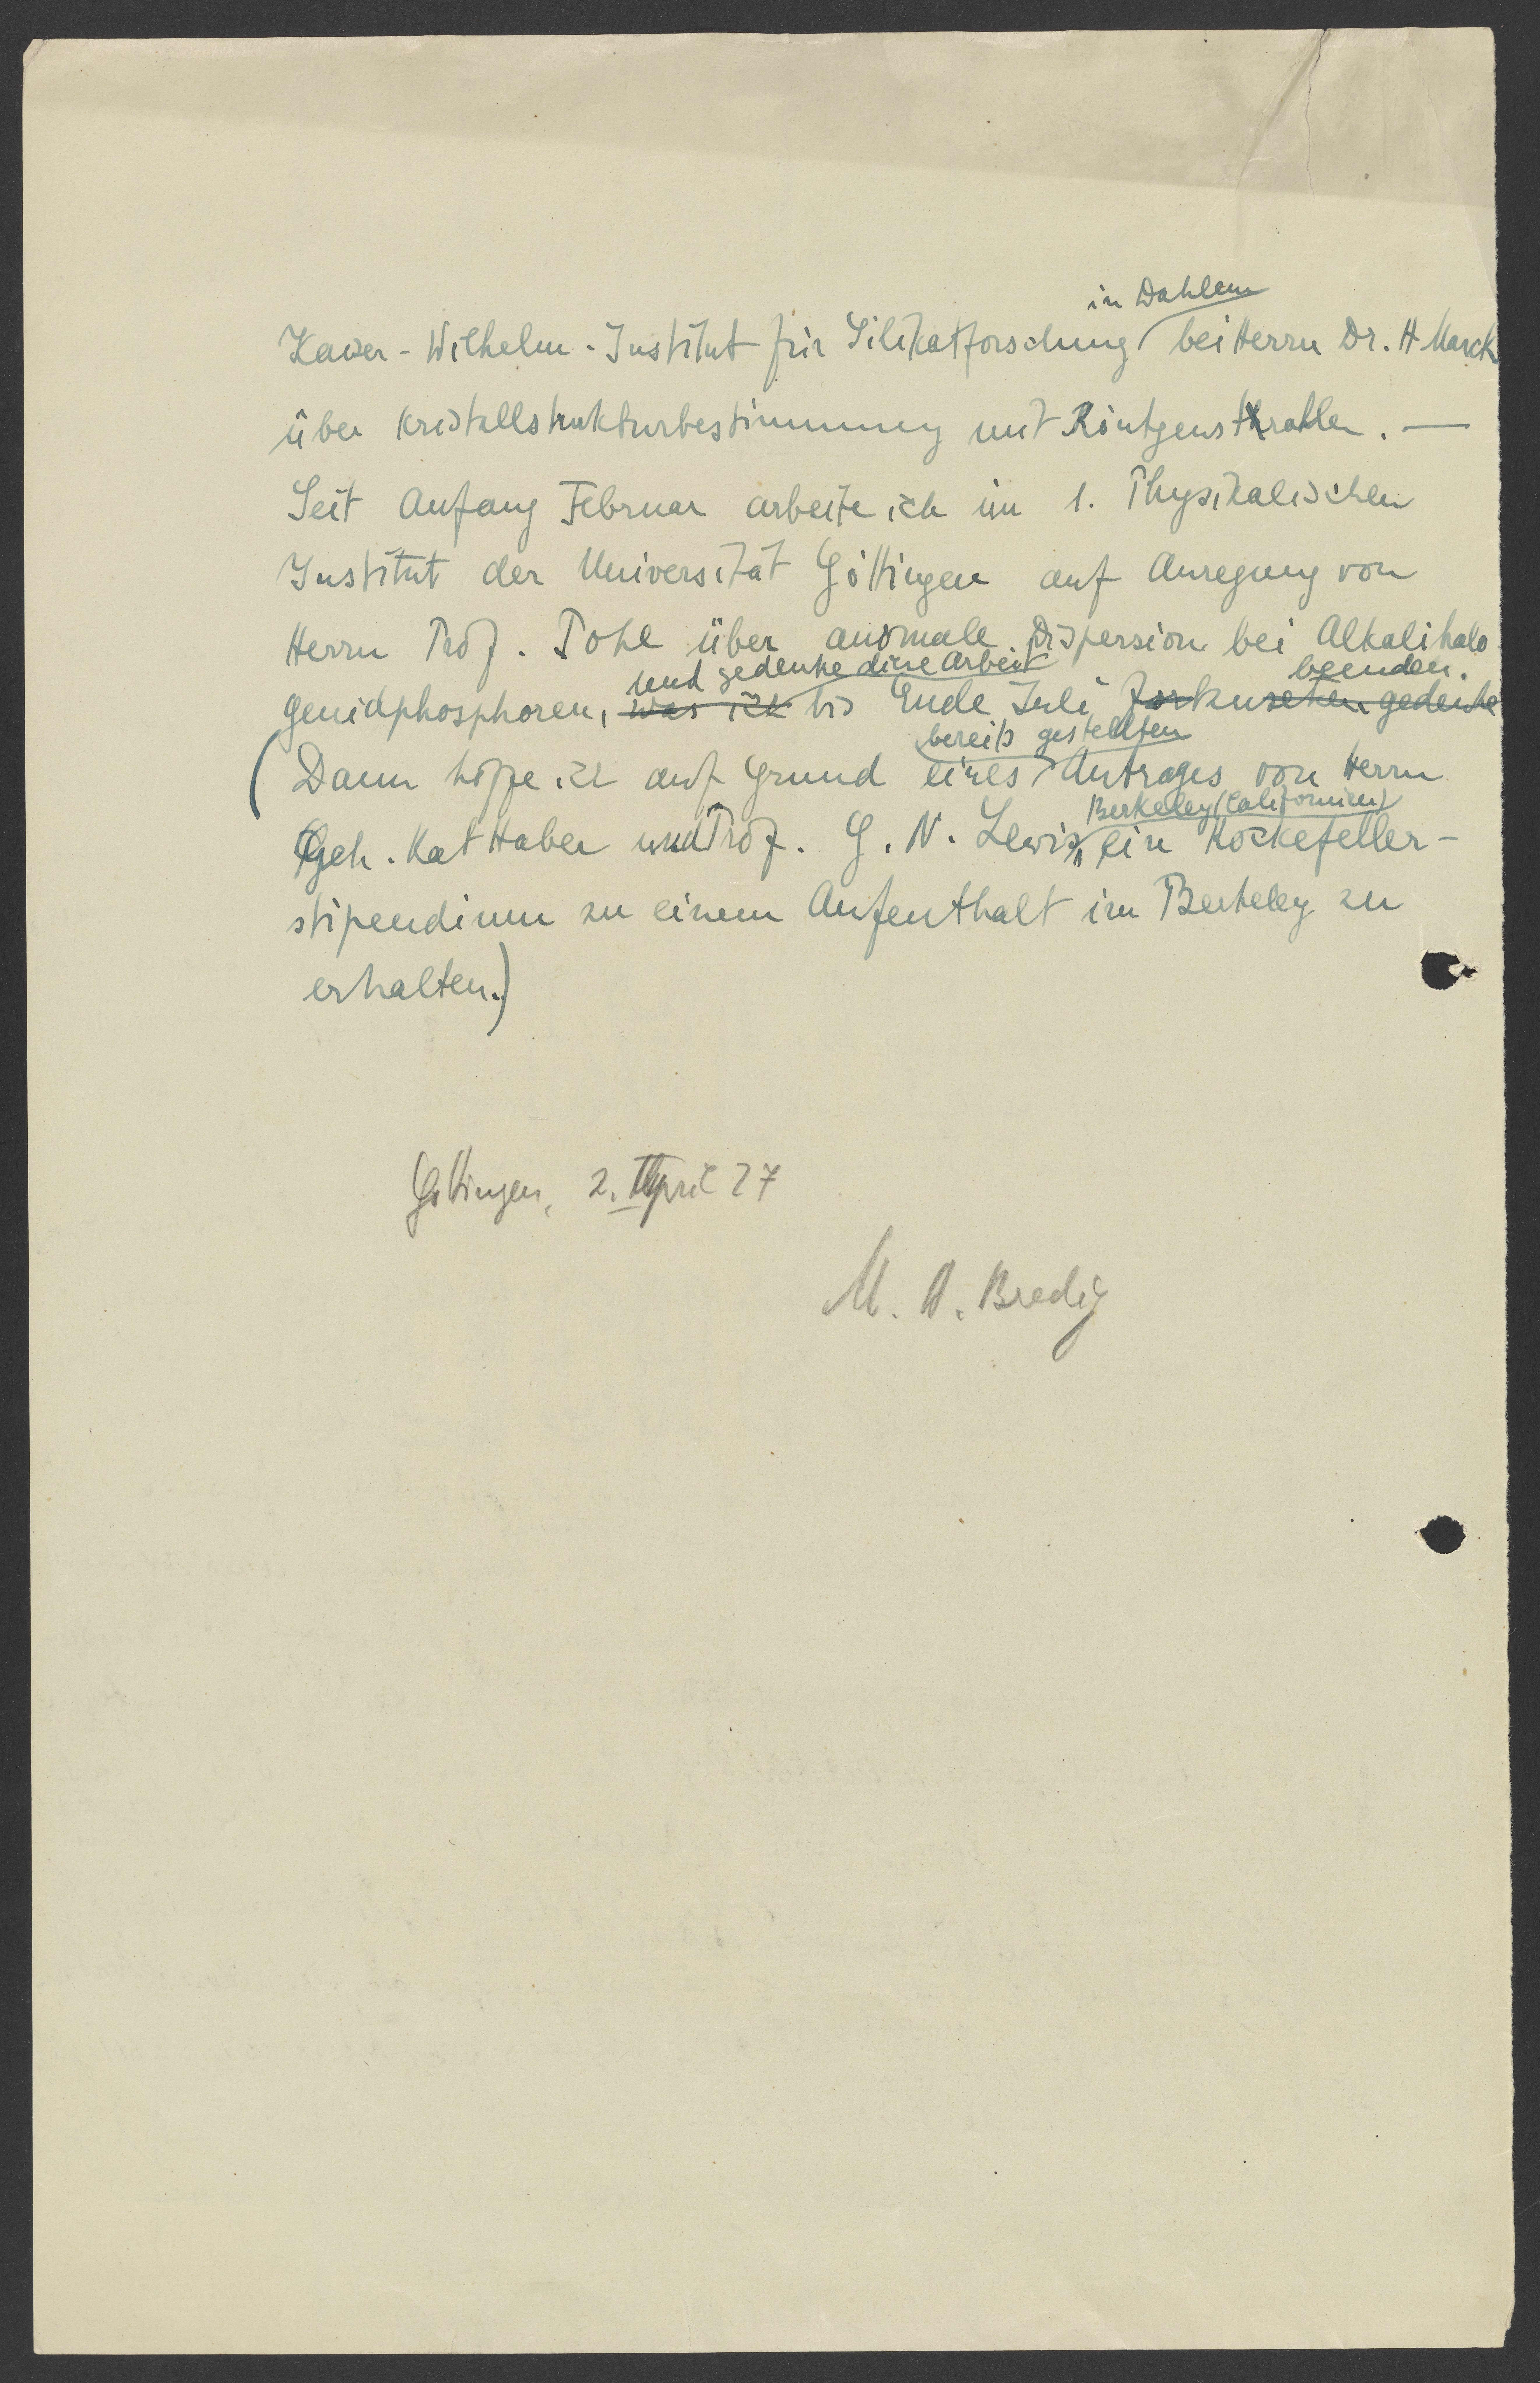 in Dahlem
Kaiser-Wilhelm-Institut für Silikatforschung bei Herrn Dr. H Marck
über Kristallstrukturbestimmung mit Röntgenstrahlen. —
Seit Anfang Februar arbeite ich im 1. Physikalischen
Institut der Universität Göttingen auf Anregung von
Herrn Prof. Pohl über anomale Dispersion bei Alkalihalo
und gedenke diese Arbeit beenden.
genidphosphoren, was ich bis Ende Juli fortzusetzen gedenke
bereits gestellten
(Dann hoffe ich auf Grund eines Antrages von Herrn
Berkeley (Californien)
Geh. Rat Haber und Prof. G. N. Lewis, ein Rockefeller-
stipendium zu einem Aufenthalt in Berkeley zu
erhalten.)
Göttingen, 2. April 27
M. A. Bredig